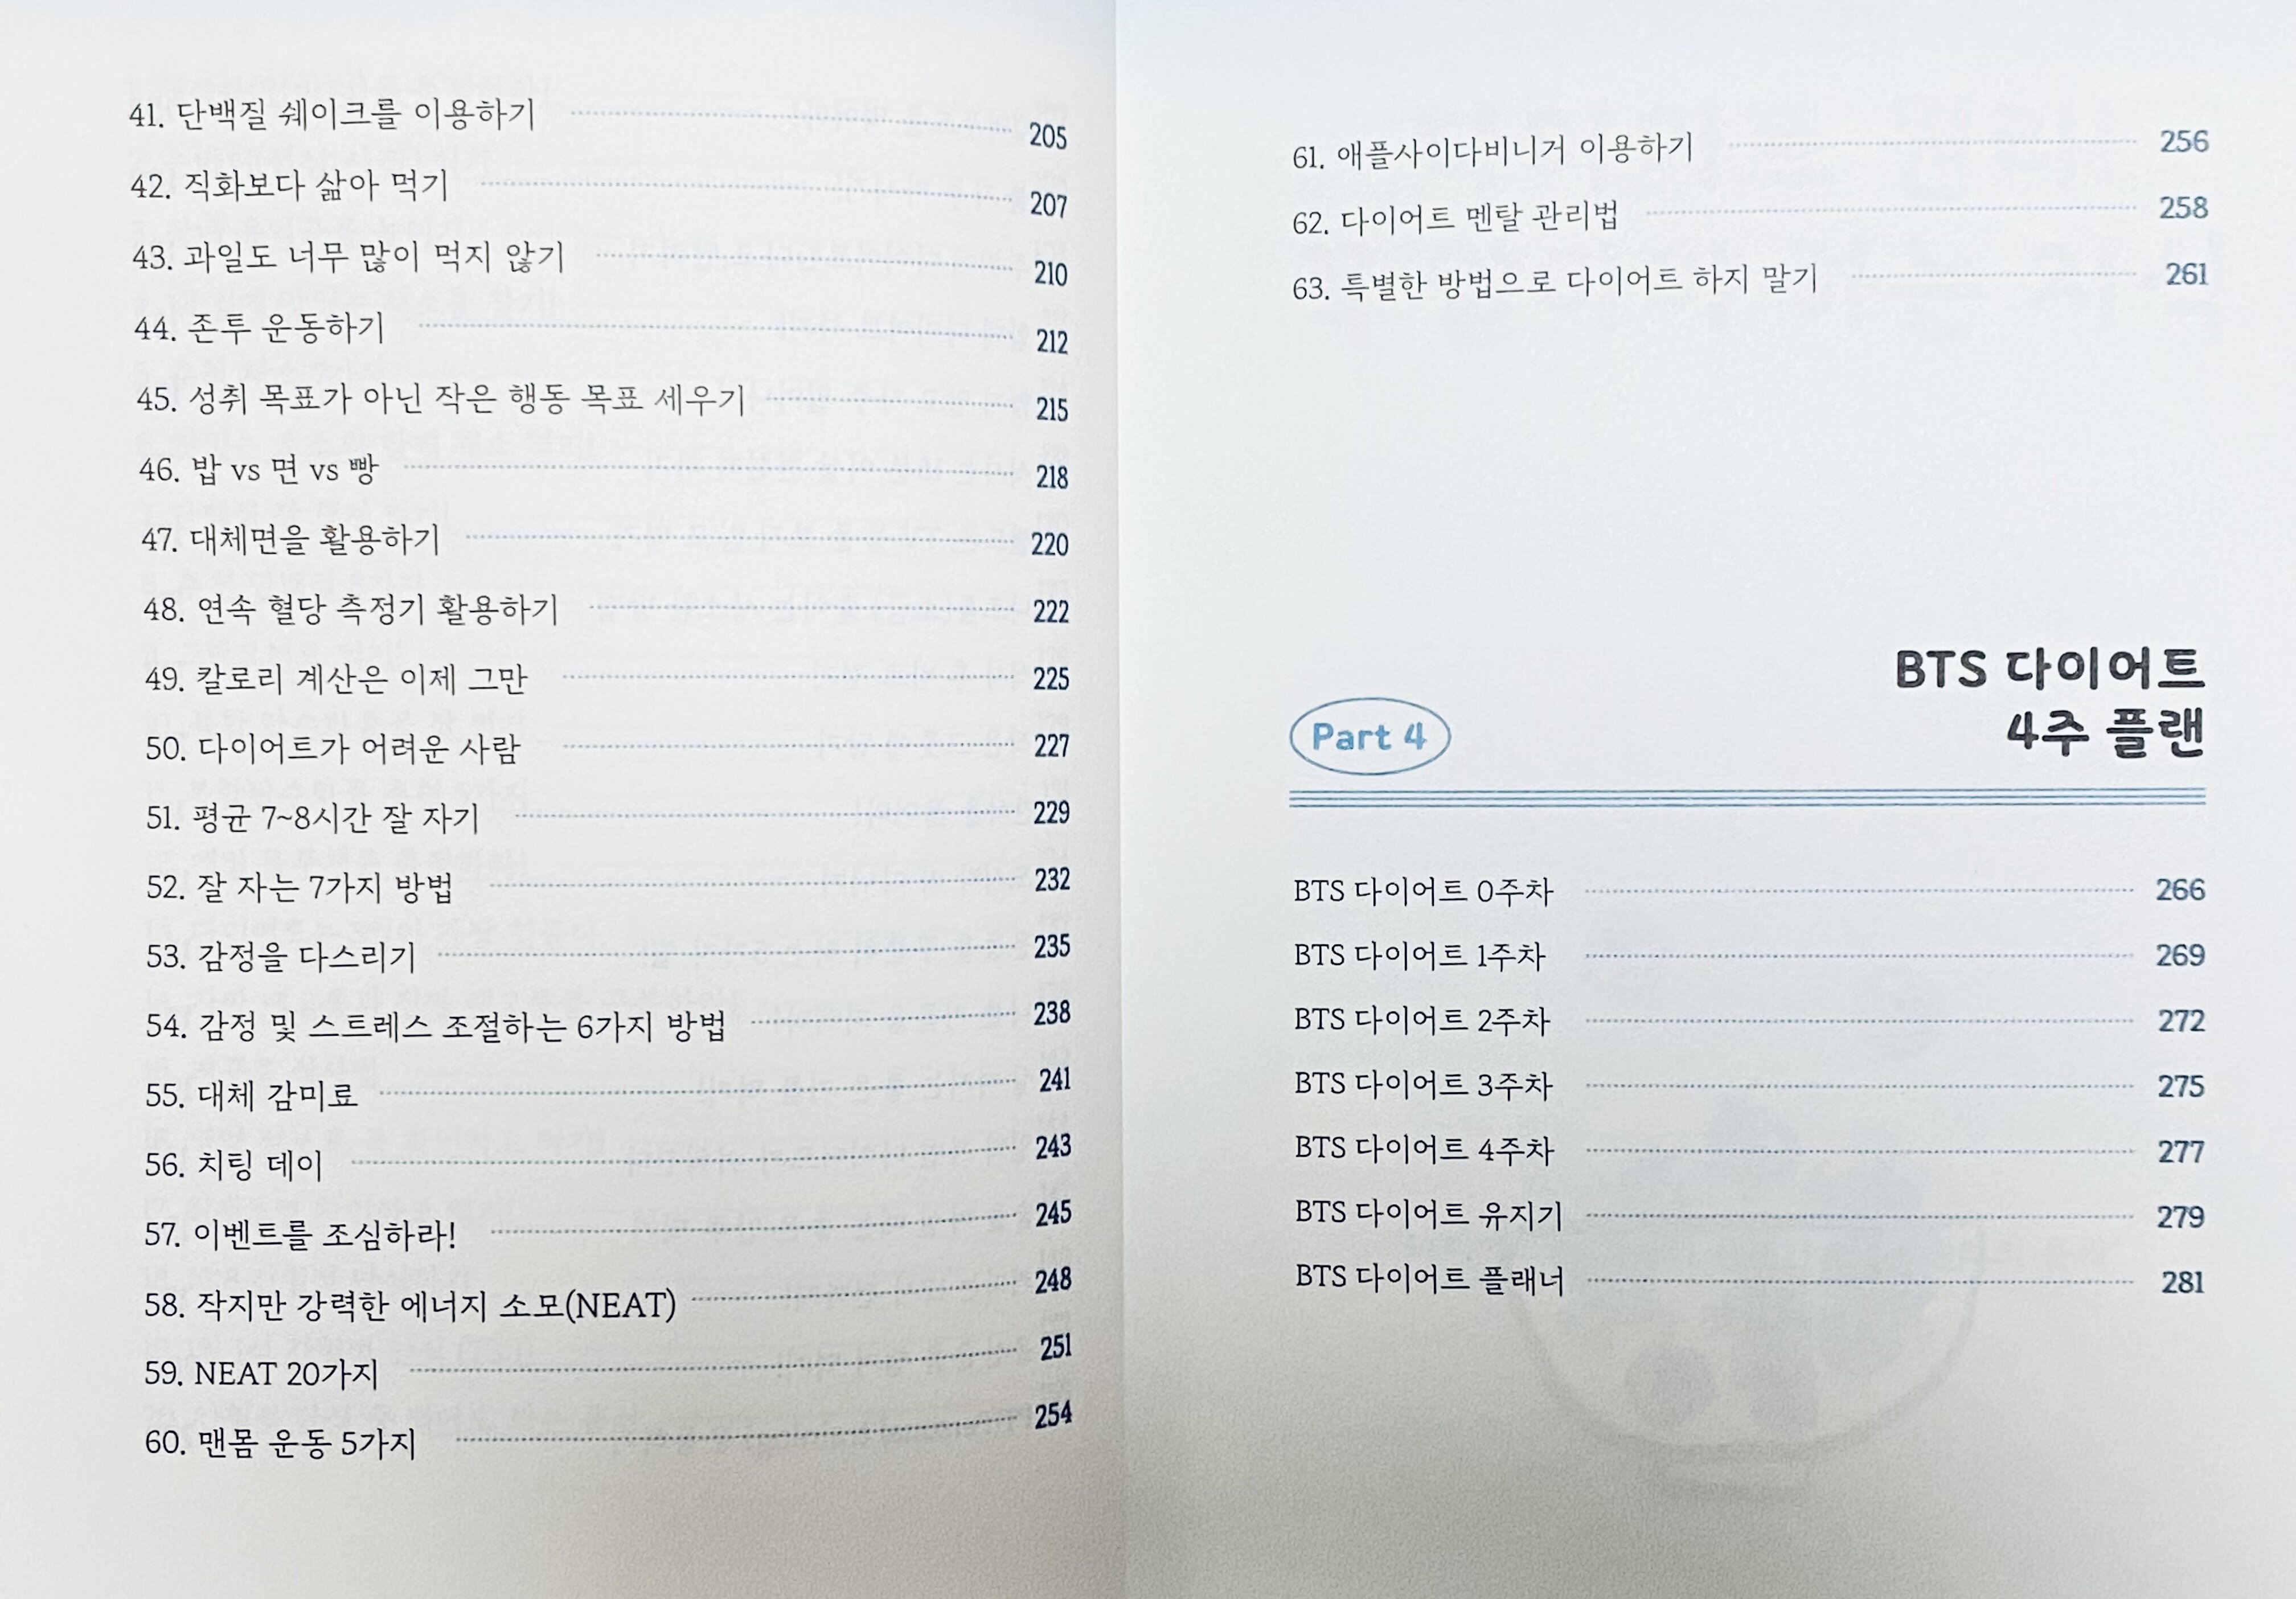 41. 단백질 쉐이크를 이용하기 205
42. 직화보다 삶아 먹기 207
43. 과일도 너무 많이 먹지 않기 210
44. 존투 운동하기 212
45. 성취 목표가 아닌 작은 행동 목표 세우기 215
46. 밥 vs 면 vs 빵 218
47. 대체면을 활용하기 220
48. 연속 혈당 측정기 활용하기 222
49. 칼로리 계산은 이제 그만 225
50. 다이어트가 어려운 사람 227
51. 평균 7~8시간 잘 자기 229
52. 잘 자는 7가지 방법 232
53. 감정을 다스리기 235
54. 감정 및 스트레스 조절하는 6가지 방법 238
55. 대체 감미료 241
56. 치팅 데이 243
57. 이벤트를 조심하라! 245
58. 작지만 강력한 에너지 소모(NEAT) 248
59. NEAT 20가지 251
60. 맨몸 운동 5가지 254
61. 애플사이다비니거 이용하기 256
62. 다이어트 멘탈 관리법 258
63. 특별한 방법으로 다이어트 하지 말기 261
Part 4
BTS 다이어트
4주 플랜
BTS 다이어트 0주차 266
BTS 다이어트 1주차 269
BTS 다이어트 2주차 272
BTS 다이어트 3주차 275
BTS 다이어트 4주차 277
BTS 다이어트 유지기 279
BTS 다이어트 플래너 281